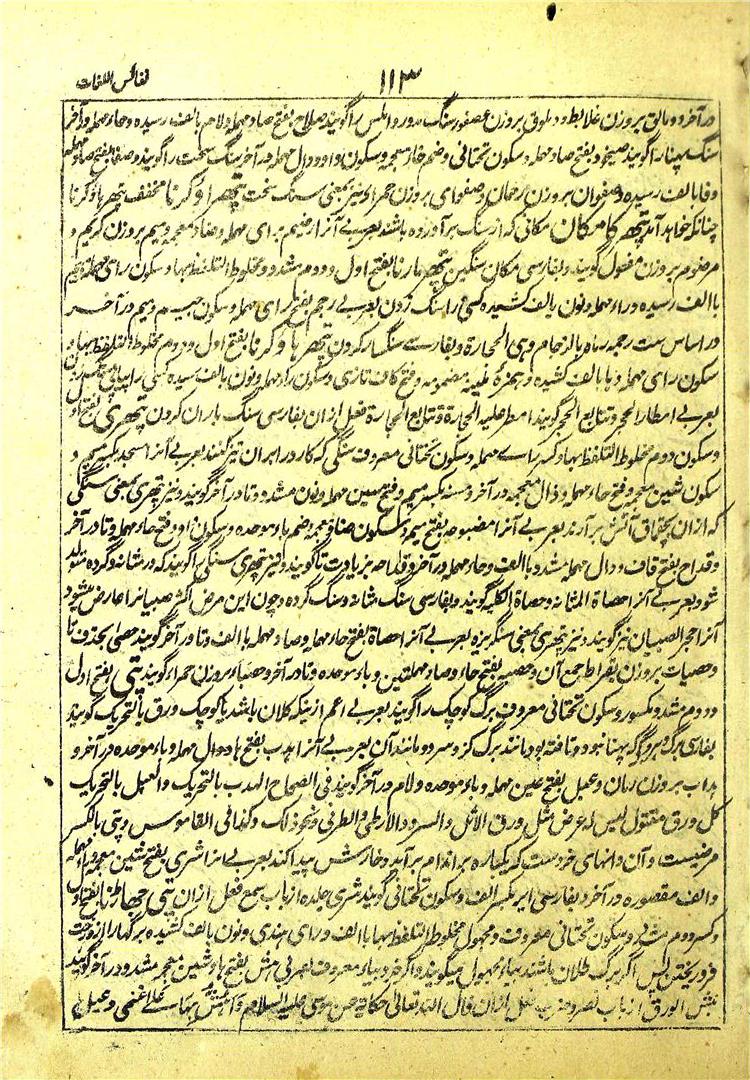 نفائس اللغات
۱۱۳
در آخر و دمالق بروزن غلابط و دملوق بروزن عصفور سنگ مدور و املس را گویند صلاح بفتح صاد مهمله و لام بالف رسیده و حاء مهمله در آخر
سنگ پهنا را گویند صیخود بفتح صاد مهمله و سکون تحتانی و ضم خاء معجمه و سکون واو و دال مهمله در آخر سنگ سخت را گویند و صفا بفتح صاد مهمله
و فا بالف رسیده و صفوان بروزن رحمان و صفواء بروزن حمراء نیز بمعنی سنگ سخت پتهراو کرنا مخفف پتهر باو کرنا
چنانکه خواهد آمد پتهر کا مکان مکانی که از سنگ برآورده باشند بعربی آنرا رضیم براء مهمله و ضاد معجمه و میم بروزن کریم و
مرضوم بروزن مفعول گویند و بفارسی مکان سنگین پتهر مارنا بفتح اول و دوم مشدد و مخلوط التلفظ بها و سکون رای مهمله و میم
با الف رسیده و راء مهمله و نون بالف کشیده کسی را سنگ زدن بعربی رجم بفتح رای مهمله و سکون جیم و میم در آخر
در اساس ست رجمه رماه بالرجام وهی الحجارة و بفارسے سنگسار کردن پتهر باو کرنا بفتح اول و دوم مخلوط التلفظ بها و
سکون رای مهمله و با بالف کشیده و همزه ملینه مضمومه و فتح کاف تازی و سکون راء مهمله و نون بالف رسیده کسی را پیاپی سنگ زدن
بعربی امطار الحجر و تتابع الحجر گویند امطر علیه الحجارة و تتابع الحجارة فعل ازان بفارسی سنگ باران کردن پتهری بفتح اول
و سکون دوم مخلوط التلفظ بها و کسر راے مهمله و سکون تحتانی معروف سنگی که کارد را بران تیز کنند بعربی آنرا مشحذ بکسر میم و
سکون شین معجمه و فتح حاء مهمله و ذال معجمه در آخر و مسنه بکسر میم و فتح سین مهمله و نون مشدد و تا در آخر گویند و نیز پتهری بمعنی سنگی
که ازان بچقماق آتش برآرند بعربی آنرا مضبوحه بفتح میم و سکون ضاد معجمه و ضم باء موحده و سکون واو و فتح حاء مهمله و تا در آخر
و قداح بفتح قاف و دال مهمله مشدد با الف و حاء مهمله در آخر و قداحه بزیادت تا گویند و نیز پتهری سنگی را گویند که در مثانه و گرده متولد
شود بعربی آنرا حصاة المثانه و حصاة الکلیه گویند و بفارسی سنگ مثانه و سنگ گرده و چون این مرض اکثر صبیانرا عارض میشود
آنرا حجر الصبیان نیز گویند و نیز پتهری بمعنی سنگریزه بعربی آنرا حصاة بفتح حاء مهمله و صاد مهمله با الف و تا در آخر گویند حصی بحذف تا
و حصیات بروزن بقراط جمع آن و حصبه بفتح حاء و صاد مهملتین و باء موحده و تا در آخر و حصباء بروزن حمراء گویند پتی بفتح اول
و دوم مشدد مکسور و سکون تحتانی معروف برگ کوچک را گویند بعربی اعم از ینکه کلان باشد یا کوچک ورق بالتحریک گویند
بفارسی برگ و برگ که پهنا نبود و تافته بود مانند برگ گز و سرو و مانند آن بعربی آنرا هدب بفتح ها و دال مهمله و باء موحده در آخر و
هداب بروزن رمان و عبل بفتح عین مهمله و باء موحده و لام در آخر گویند فی الصحاح الهدب بالتحریک و العبل بالتحریک
کل ورق مفتول لیس له عرض مثل ورق الاثل و السرو و الارطی و الطرفی و نحو ذلک و کذا فی القاموس و پتی بالکسر
مرضیست و آن دانهای خردست که یکباره بر اندام برآید و خارش پیدا کند بعربی آنرا شری بفتح شین معجمه و راء مهمله
و الف مقصوره در آخر و بفارسی ایر بکسر الف و سکون تحتانی گویند شری جلده از باب سمع فعل ازان پتی جهاڑنا بفتح اول
و کسر دوم مشدد و سکون تحتانی معروف و مجهول مخلوط التلفظ بها با الف و رای هندی و نون بالف کشیده برگها را از درخت
فرو ریختن لیس اگر برگ کلان باشند بیاء مجهول میگویند و اگر خرد بیاء معروف بعربی هش بفتح ها و شین معجمه مشدد در آخر گویند
هش الورق از باب نصر و ضرب فعل ازان قال الله تعالی حکایة عن موسی علیه السلام و اهش بها علی غنمی و عبل